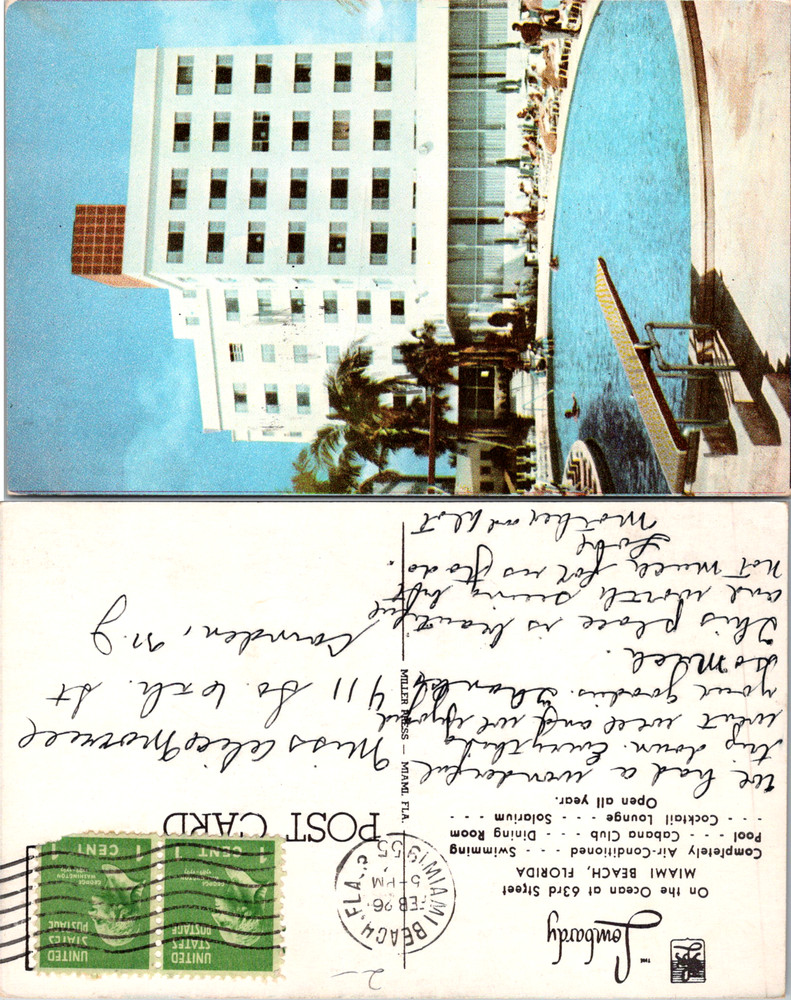 THE
Lombardy
On the Ocean at 63rd Street
MIAMI BEACH, FLORIDA
Completely Air-Conditioned - - - - Swimming
Pool - - - - Cabana Club - - - - Dining Room
- - - - Cocktail Lounge - - - - Solarium - - - -
Open all year.
We had a wonderful
trip down. Everything
went well and we enjoyed
your goodies. Thanks
so much.
This place is beautiful
and worth seeing but
not much for us to do.
Love
Mother and
MILLER PRESS — MIAMI, FLA.
POST CARD
MIAMI BEACH, FLA.
FEB 26
5 - PM
1955
2-
UNITED
STATES
POSTAGE
GEORGE
WASHINGTON
1789-1797
1 CENT 1
UNITED
STATES
POSTAGE
GEORGE
WASHINGTON
1789-1797
1 CENT 1
Miss Alice
411 So. 6th. St
Camden, N.J